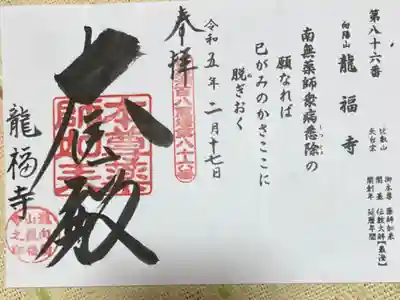 第八十六番
向陽山
龍福寺
比叡山
天台宗
御本尊 薬師如来
開基 伝教大師【最澄】
開創年 延暦年間
南無薬師衆病悉除の
願なれば
巳がみのかさここに
脱ぎおく
令和五年二月十七日
奉拝
龍福寺